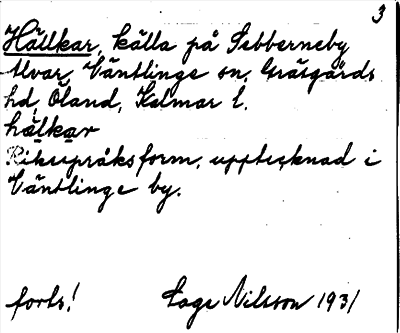 3
Hällkar, källa på Sebberneby
Alvar, Ventlinge sn, Gräsgårds
hd, Öland, Kalmar l.
hälkar
Riksspråksform, upptecknad i
Ventlinge by.
forts! Sage Nilsson 1931